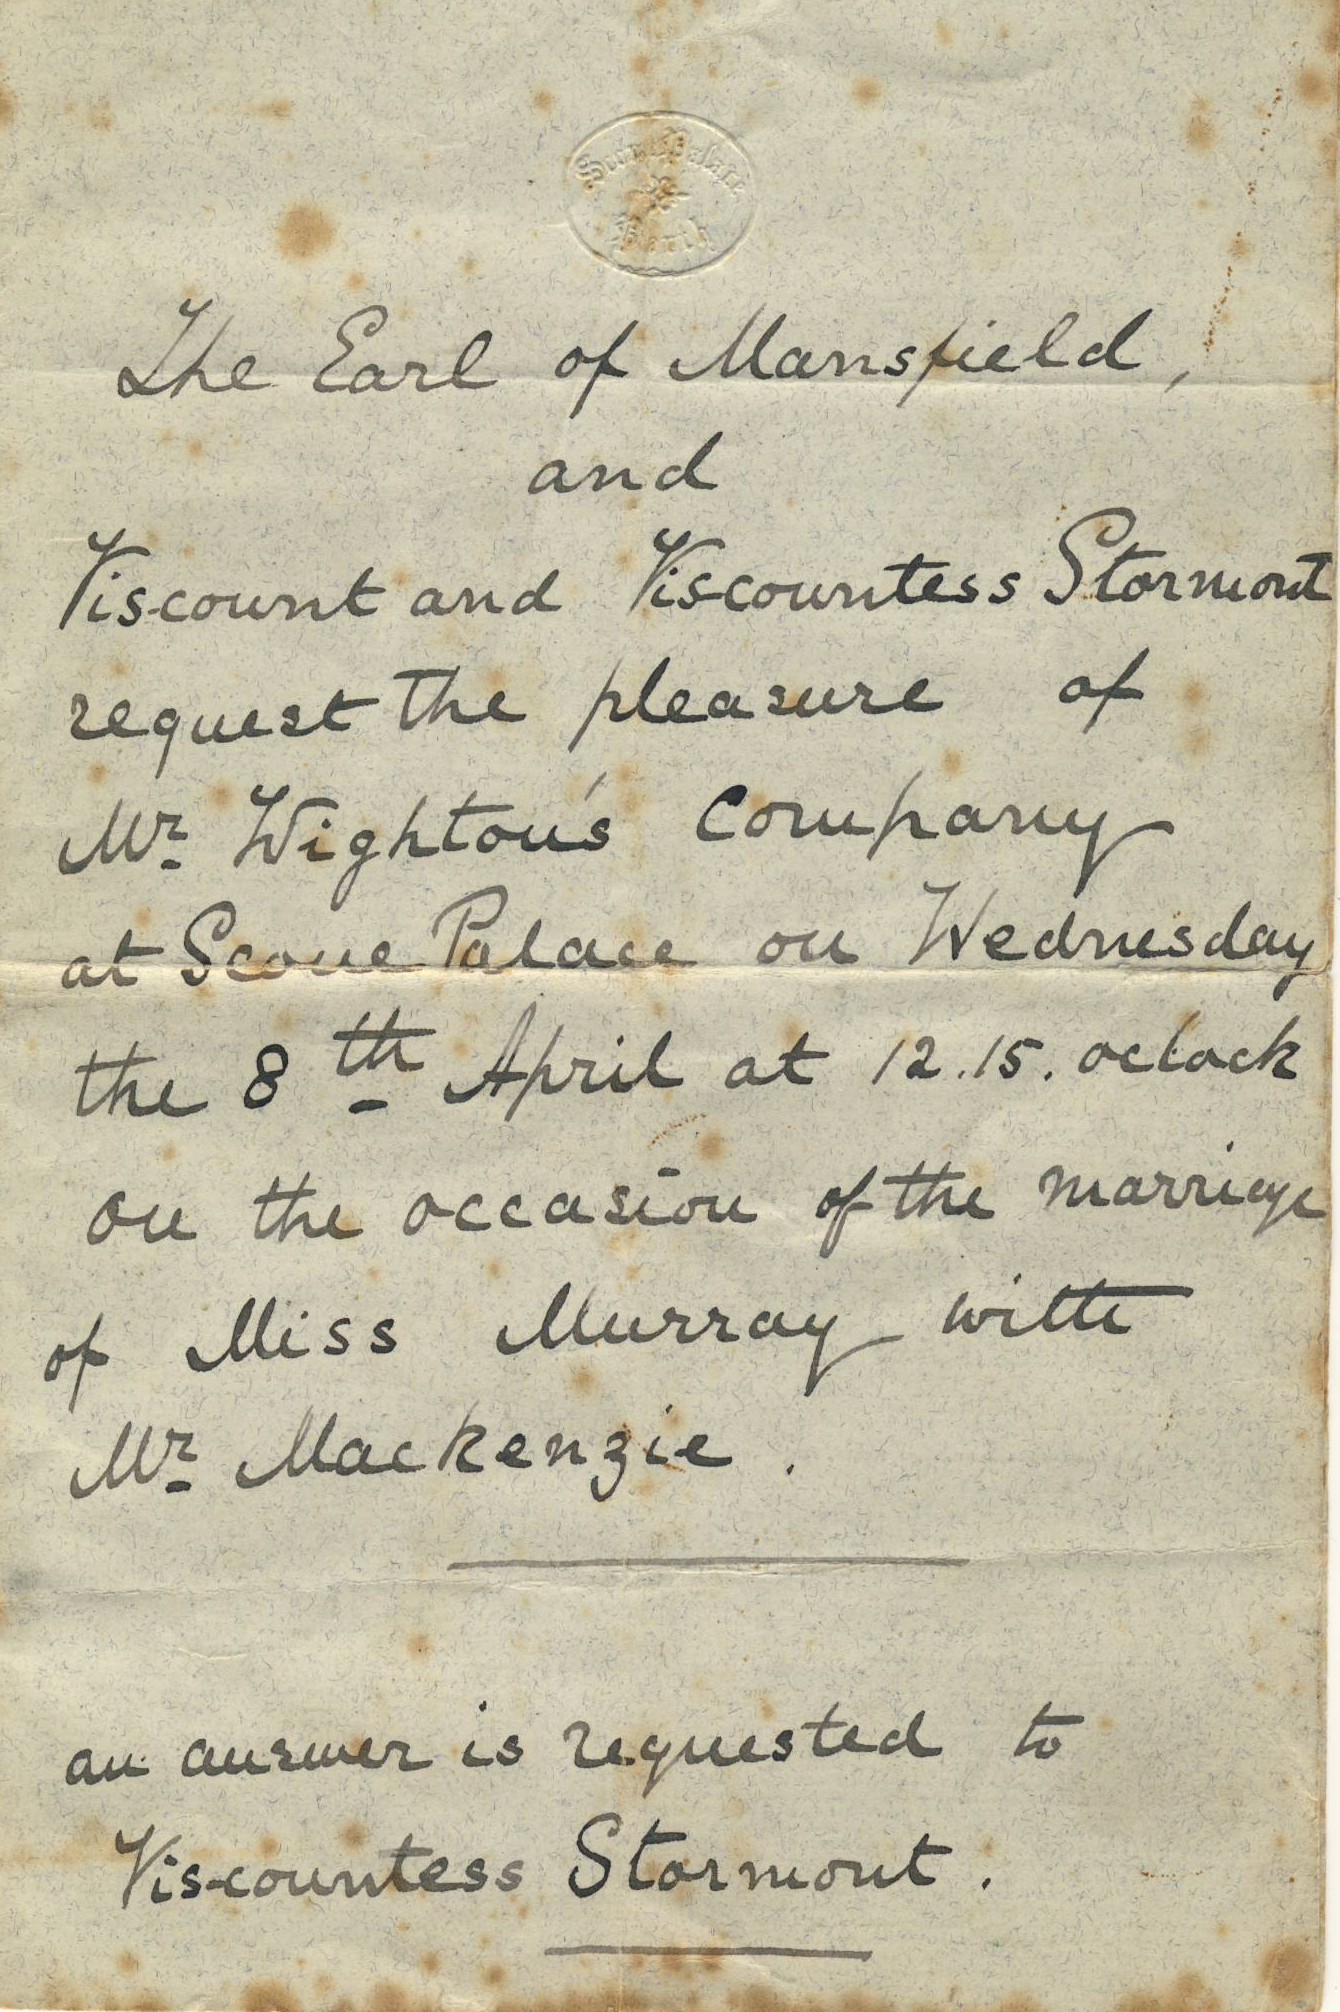 Scone Palace
Perth
The Earl of Mansfield,
and
Viscount and Viscountess Stormont
request the pleasure of
Mr. Wighton's company
at Scone Palace on Wednesday
the 8th April at 12.15. oclock
on the occasion of the marriage
of Miss Murray with
Mr. Mackenzie.
an answer is requested to
Viscountess Stormont.